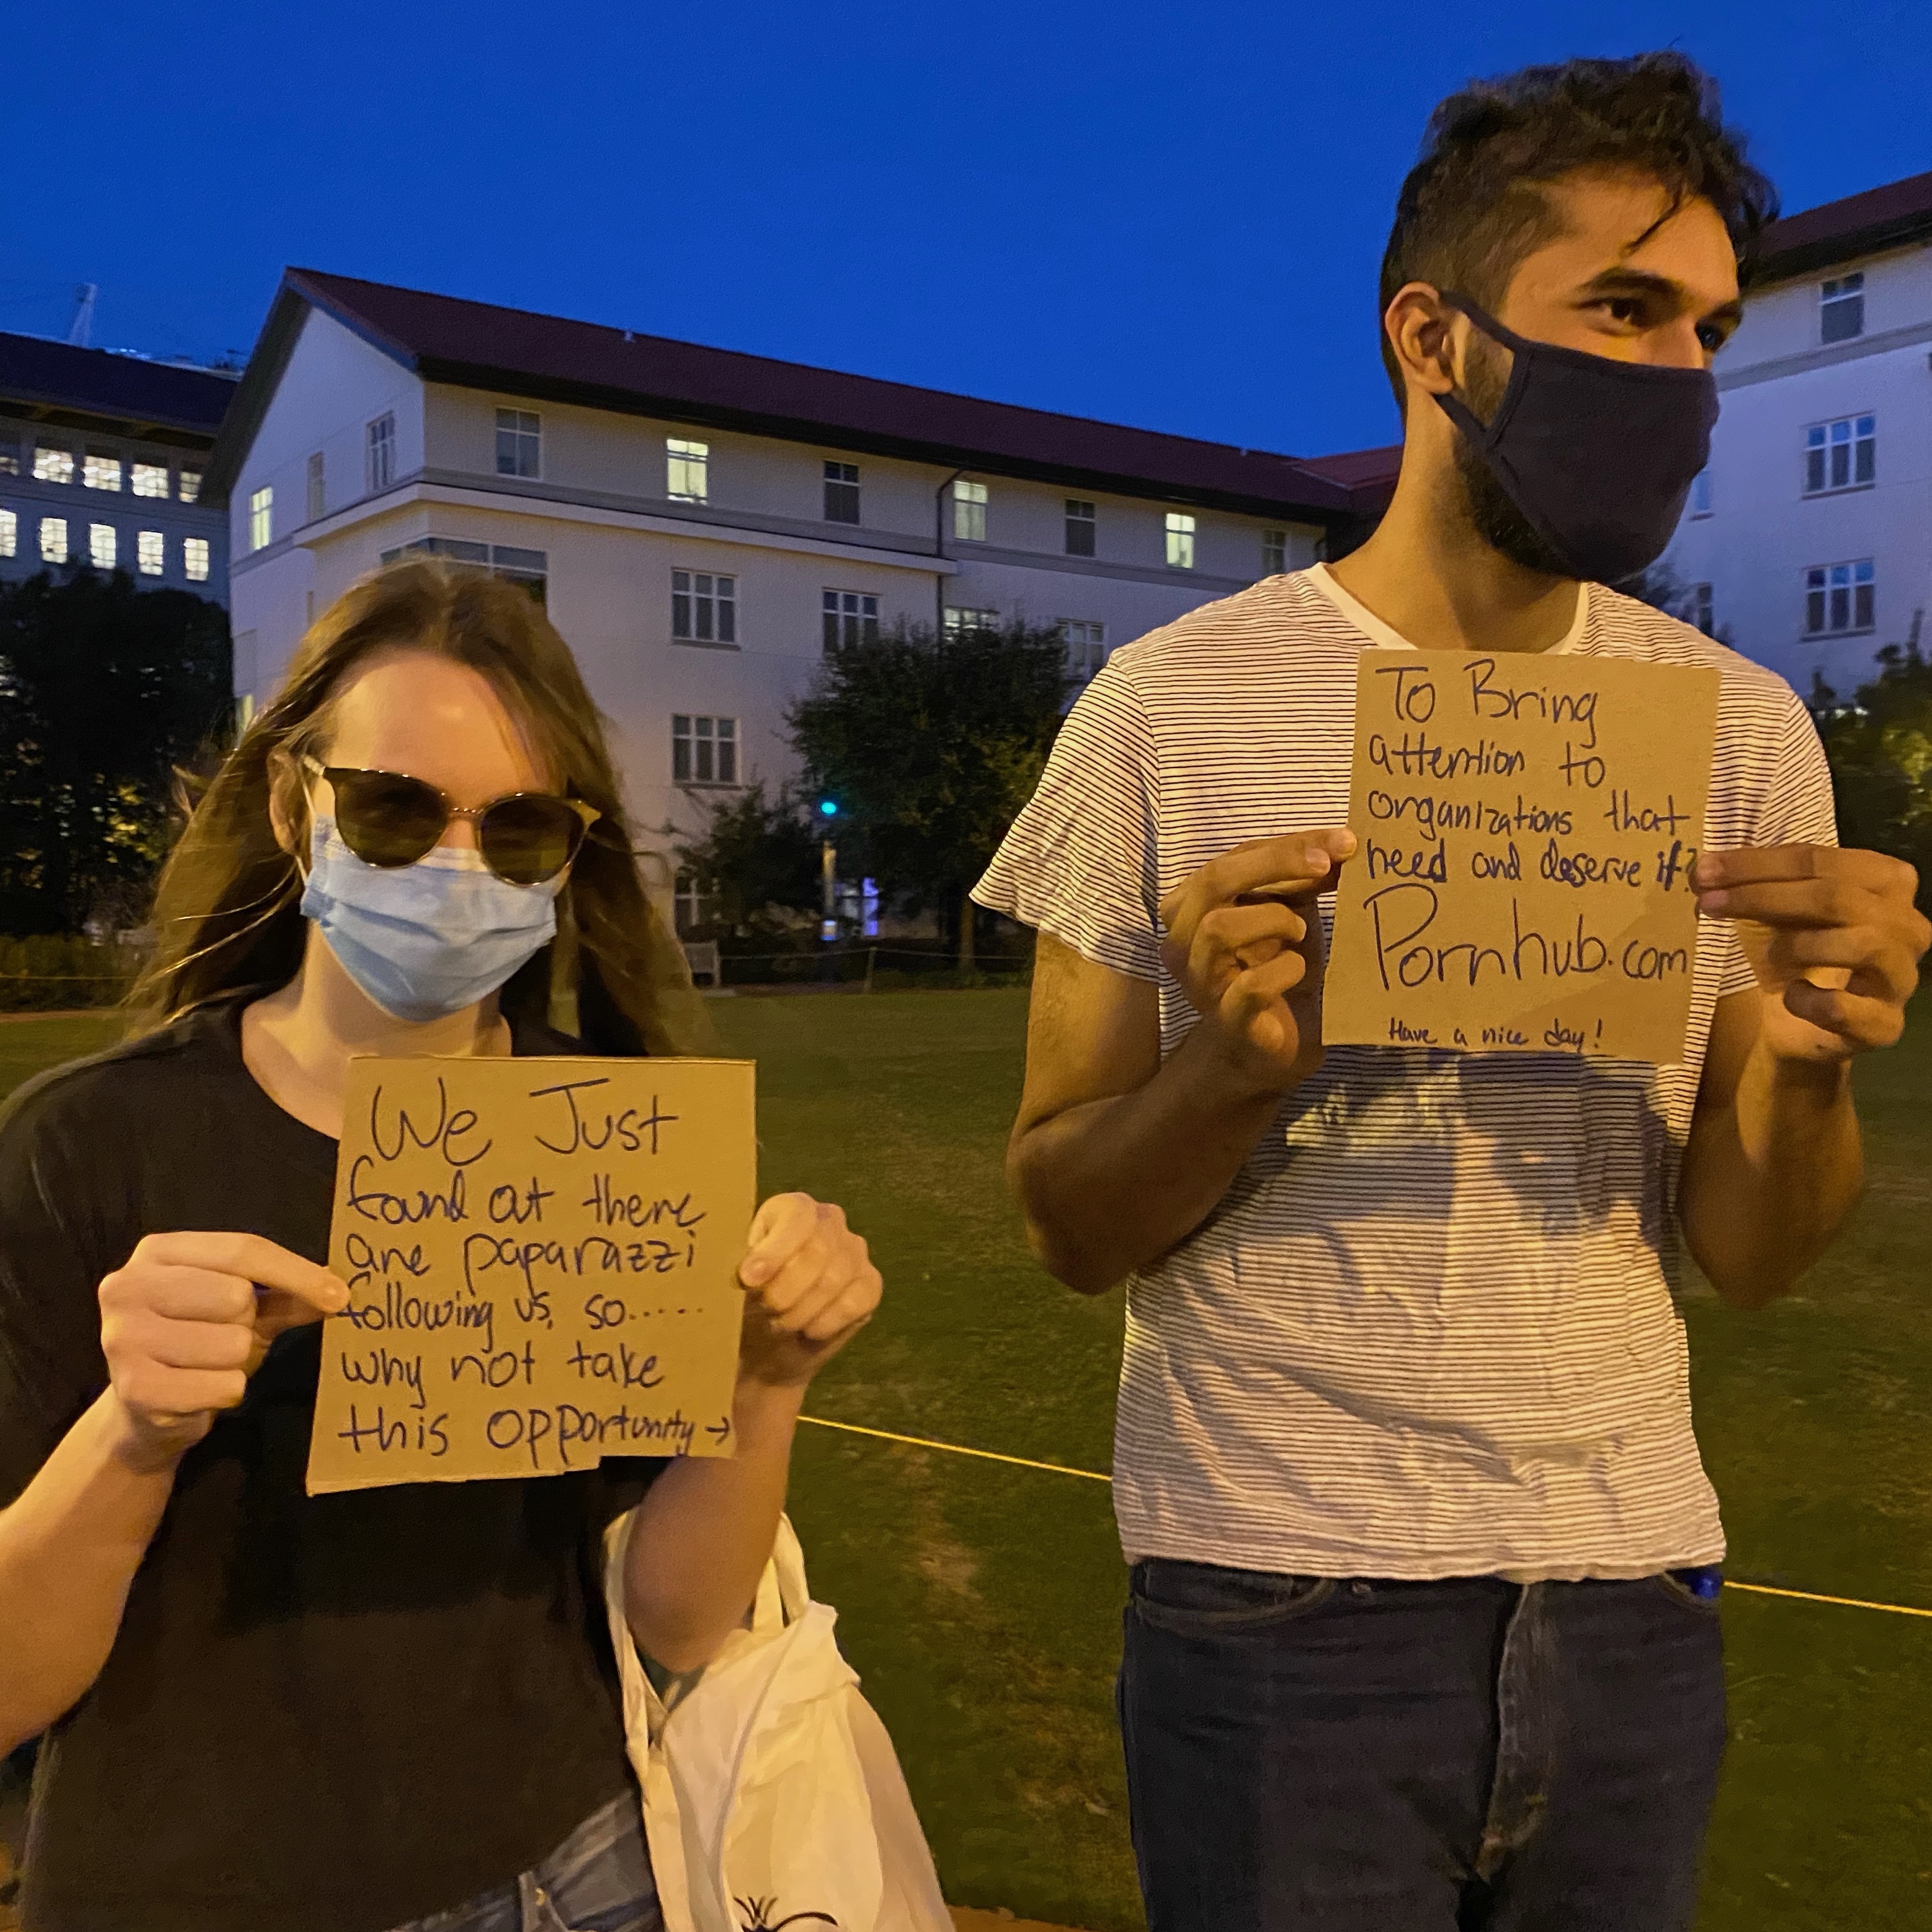 We Just
found out there
are paparazzi
following us, so.....
why not take
this opportunity →
To Bring
attention to
organizations that
need and deserve it?
Pornhub.com
Have a nice day!